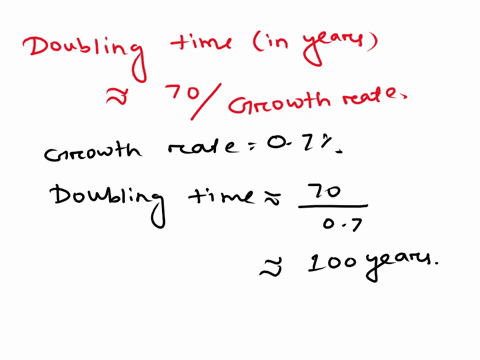 Doubling time (in years)
≈ 70/Growth rate.
Growth rate = 0.7%.
Doubling time ≈ 70
0.7
≈ 100 years.